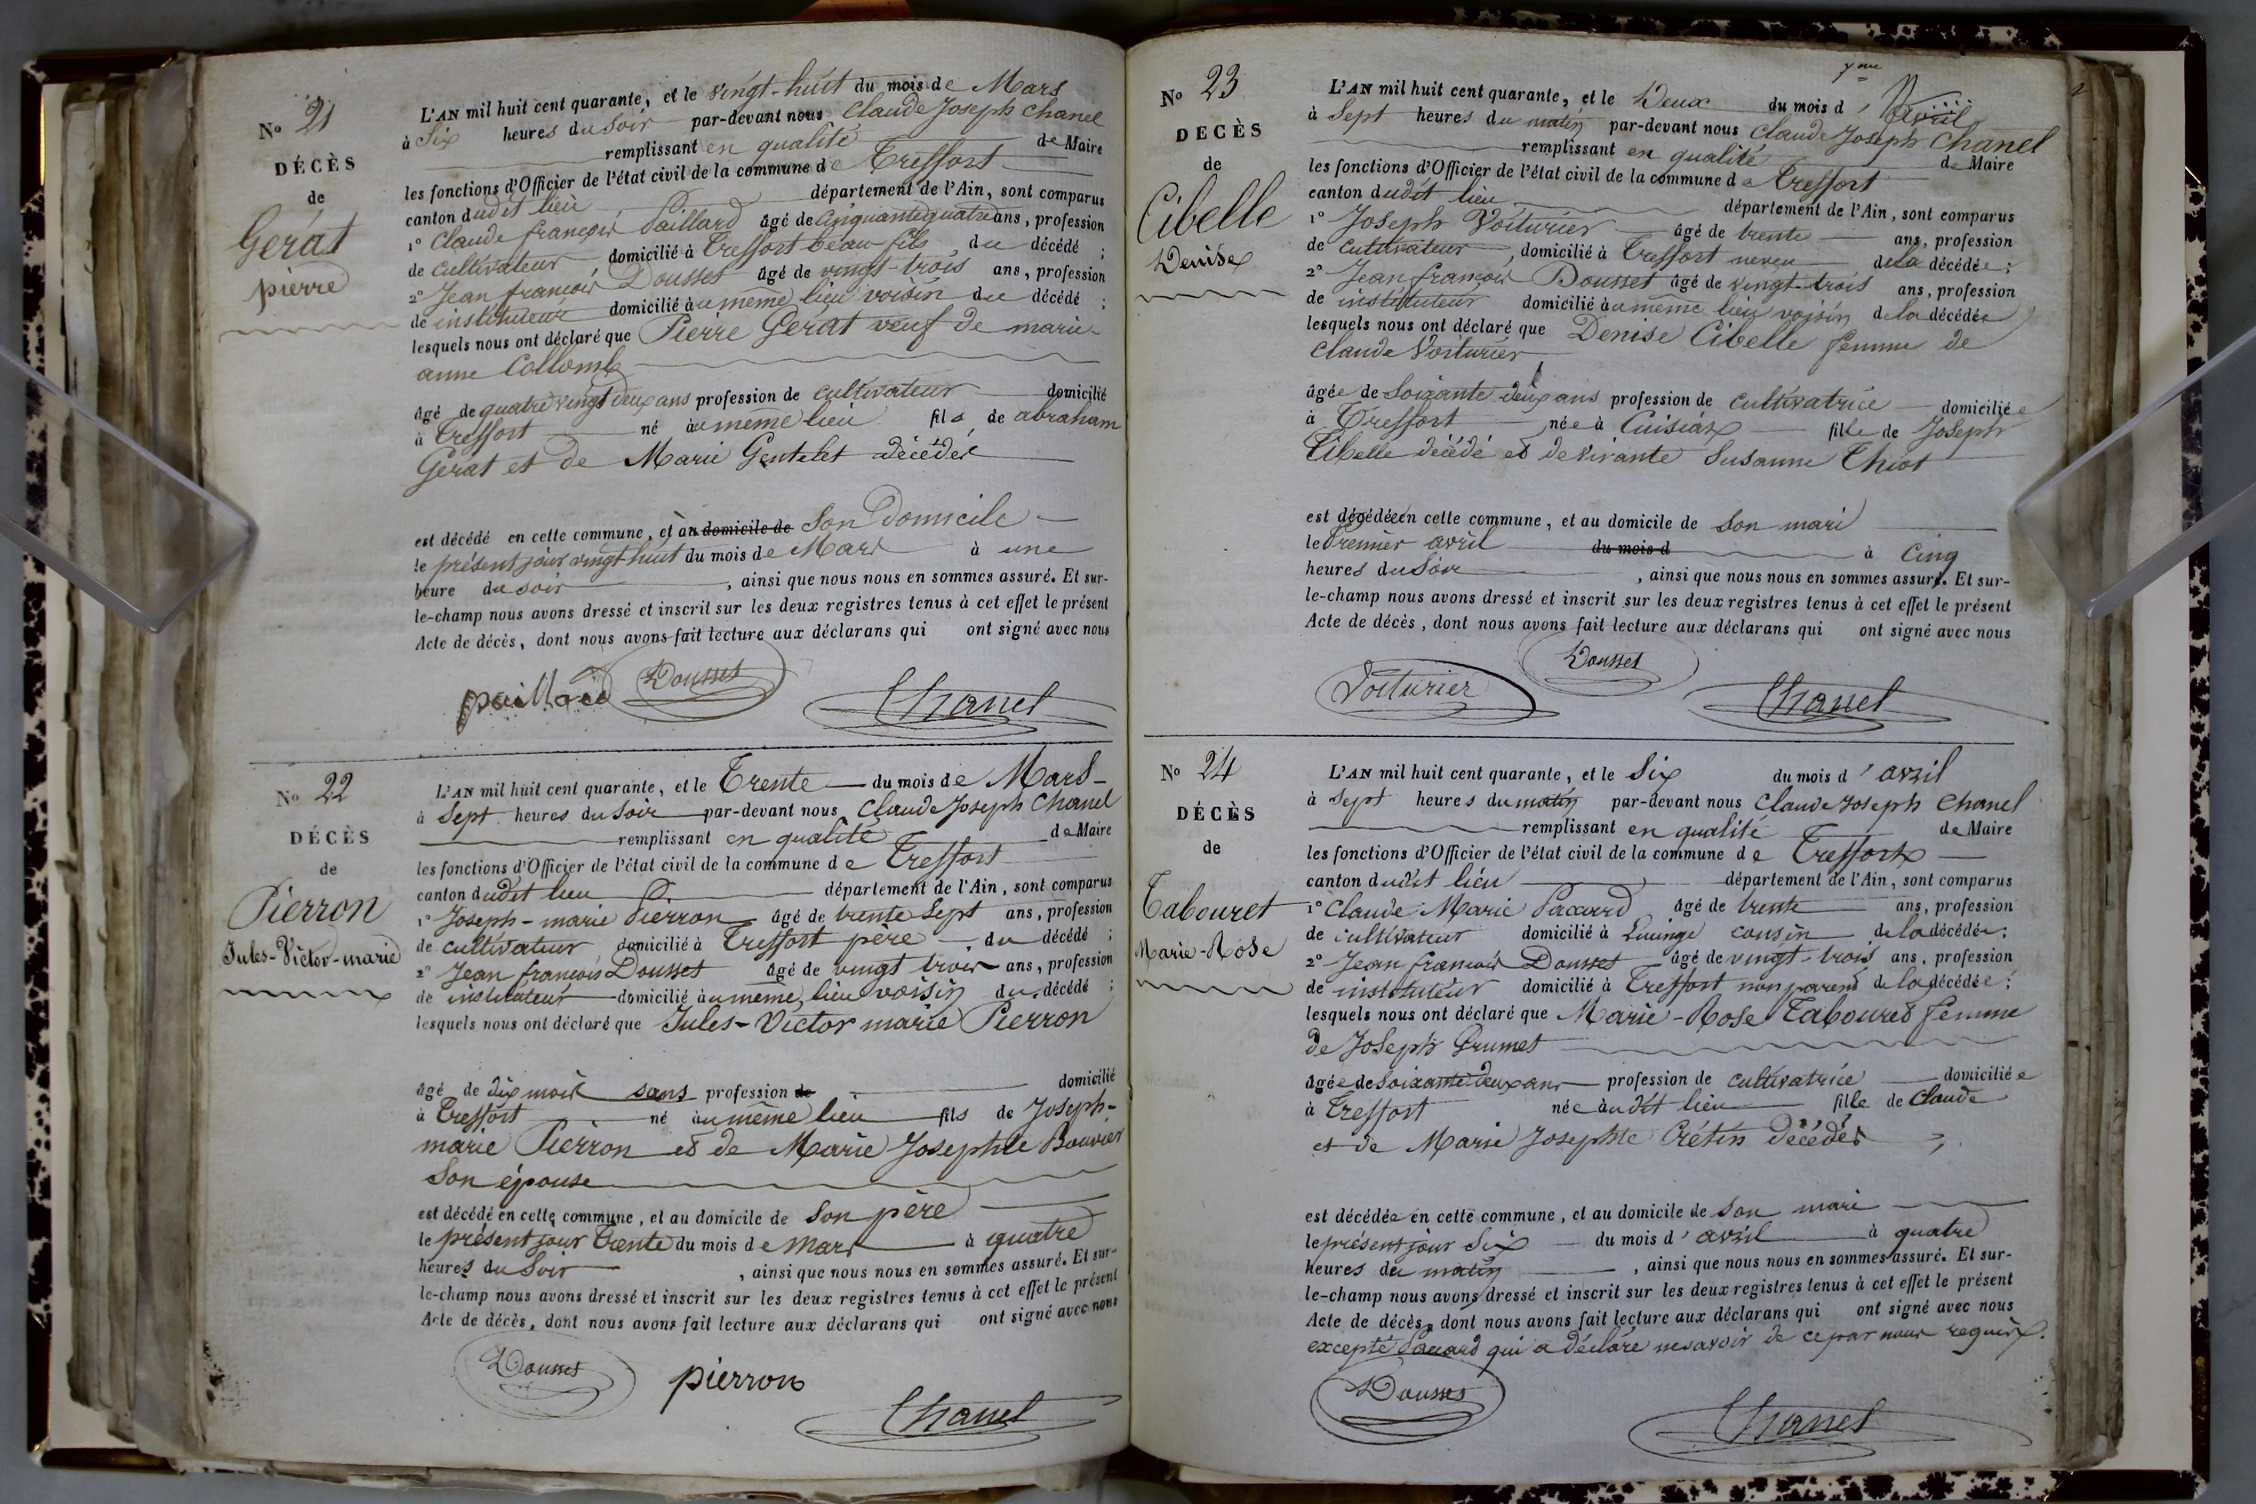 No 21
DÉCÈS
de
Gerat
pierre
L'AN mil huit cent quarante, et le vingt-huit du mois de Mars
à Six heures du Soir par-devant nous Claude Joseph Chanel
remplissant en qualité de Maire
les fonctions d'Officier de l'état civil de la commune de Treffort
canton dudit lieu département de l'Ain, sont comparus
1° Claude françois Paillard âgé de Cinquante quatre ans, profession
de Cultivateur domicilié à Treffort beau-fils du décédé ;
2° Jean françois Dousset âgé de vingt-trois ans, profession
de instituteur domicilié au même lieu voisin du décédé ;
lesquels nous ont déclaré que Pierre Gerat veuf de marie
anne Collomb
âgé de quatre vingt deux ans profession de cultivateur domicilié
à Treffort né au même lieu fils de abraham
Gerat et de Marie Gentelet décédés
est décédé en cette commune, et au domicile de Son Domicile
le présent jour vingt-huit du mois de Mars à une
heure du soir , ainsi que nous nous en sommes assuré. Et sur-
le-champ nous avons dressé et inscrit sur les deux registres tenus à cet effet le présent
Acte de décès, dont nous avons fait lecture aux déclarans qui ont signé avec nous
paillard Dousset
Chanel
No 22
DÉCÈS
de
Pierron
Jules-Victor-marie
L'AN mil huit cent quarante, et le Trente du mois de Mars
à Sept heures du Soir par-devant nous Claude Joseph Chanel
remplissant en qualité de Maire
les fonctions d'Officier de l'état civil de la commune de Treffort
canton dudit lieu département de l'Ain, sont comparus
1° Joseph-marie Pierron âgé de trente Sept ans, profession
de cultivateur domicilié à Treffort père du décédé ;
2° Jean françois Dousset âgé de vingt trois ans, profession
de instituteur domicilié au même lieu voisin du décédé ;
lesquels nous ont déclaré que Jules-Victor marie Pierron
âgé de dix mois sans profession de domicilié
à Treffort né au même lieu fils de Joseph-
marie Pierron et de Marie Josephte Bouvier
Son épouse
est décédé en cette commune, et au domicile de Son père
le présent jour Trente du mois de Mars à quatre
heures du Soir , ainsi que nous nous en sommes assuré. Et sur-
le-champ nous avons dressé et inscrit sur les deux registres tenus à cet effet le présent
Acte de décès, dont nous avons fait lecture aux déclarans qui ont signé avec nous
Dousset pierron
Chanel
No 23
DÉCÈS
de
Cibelle
Denise
L'AN mil huit cent quarante, et le Deux du mois d'avril
à Sept heures du matin par-devant nous Claude Joseph Chanel
remplissant en qualité de Maire
les fonctions d'Officier de l'état civil de la commune de Treffort
canton dudit lieu département de l'Ain, sont comparus
1° Joseph Voiturier âgé de trente ans, profession
de Cultivateur, domicilié à Treffort neveu de la décédée ;
2° Jean françois Dousset âgé de vingt-trois ans, profession
de instituteur domicilié au même lieu voisin de la décédée
lesquels nous ont déclaré que Denise Cibelle femme de
Claude Voiturier
âgée de Soixante deux ans profession de cultivatrice domiciliée
à Treffort née à Cuisiat fille de Joseph
Cibelle décédé et de vivante Susanne Thiot
est décédée en cette commune, et au domicile de Son mari
le Premier avril du mois d à Cinq
heures du Soir , ainsi que nous nous en sommes assuré. Et sur-
le-champ nous avons dressé et inscrit sur les deux registres tenus à cet effet le présent
Acte de décès, dont nous avons fait lecture aux déclarans qui ont signé avec nous
Voiturier Dousset
Chanel
No 24
DÉCÈS
de
Tabouret
Marie-Rose
L'AN mil huit cent quarante, et le Six du mois d'avril
à Sept heures du matin par-devant nous Claude Joseph Chanel
remplissant en qualité de Maire
les fonctions d'Officier de l'état civil de la commune de Treffort
canton dudit lieu département de l'Ain, sont comparus
1° Claude Marie Pacard âgé de trente ans, profession
de cultivateur domicilié à cousin de la décédée ;
2° Jean françois Dousset âgé de vingt-trois ans, profession
de instituteur domicilié à Treffort non parent de la décédée ;
lesquels nous ont déclaré que Marie-Rose Tabouret femme
de Joseph Grumet
âgée de Soixante deux ans profession de cultivatrice domiciliée
à Treffort née audit lieu fille de Claude
et de Marie Josephte Crétin décédés
est décédée en cette commune, et au domicile de Son mari
le présent jour Six du mois d'avril à quatre
heures du matin , ainsi que nous nous en sommes assuré. Et sur-
le-champ nous avons dressé et inscrit sur les deux registres tenus à cet effet le présent
Acte de décès, dont nous avons fait lecture aux déclarans qui ont signé avec nous
excepté Pacard qui a déclaré ne savoir de ce par nous requis.
Dousset
Chanel